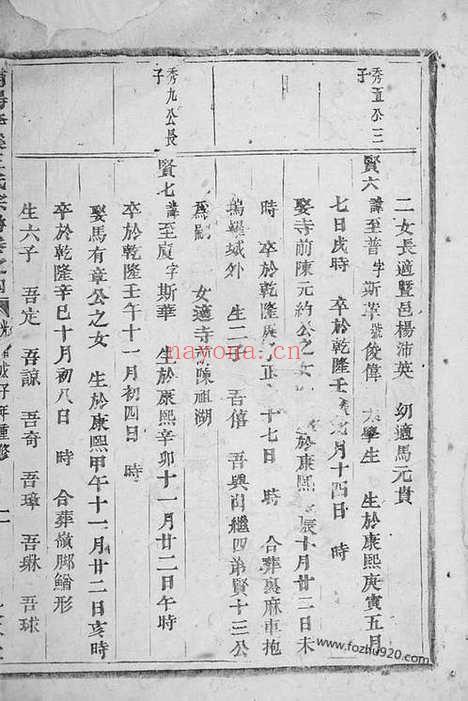 秀五公三子
秀九公長子
二女長適暨邑楊沛英 幼適馬元貴
賢六 諱至普字斯 號俊偉 太學生 生於康熙庚寅五月
七日戌時 卒於乾隆壬 月十四日 時
娶寺前陳元約公之女 於康熙 辰十月廿二日未
時 卒於乾隆 正 十七日 時 合葬裏麻車抱
塢 域外 生二子 吾僖 吾興 繼四弟賢十三公
爲嗣 女適寺 陳祖湖
賢七 諱至 字斯華 生於康熙辛卯十一月廿二日午時
卒於乾隆壬午十一月初四日 時
娶馬有章公之女 生於康熙甲午十一月廿二日亥時
卒於乾隆辛巳十月初八日 時 合葬嶺脚 形
生六子 吾定 吾諒 吾奇 吾璋 吾琳 吾球
王氏宗譜卷之四
年重修
nayona.cn
www.fozhu920.com